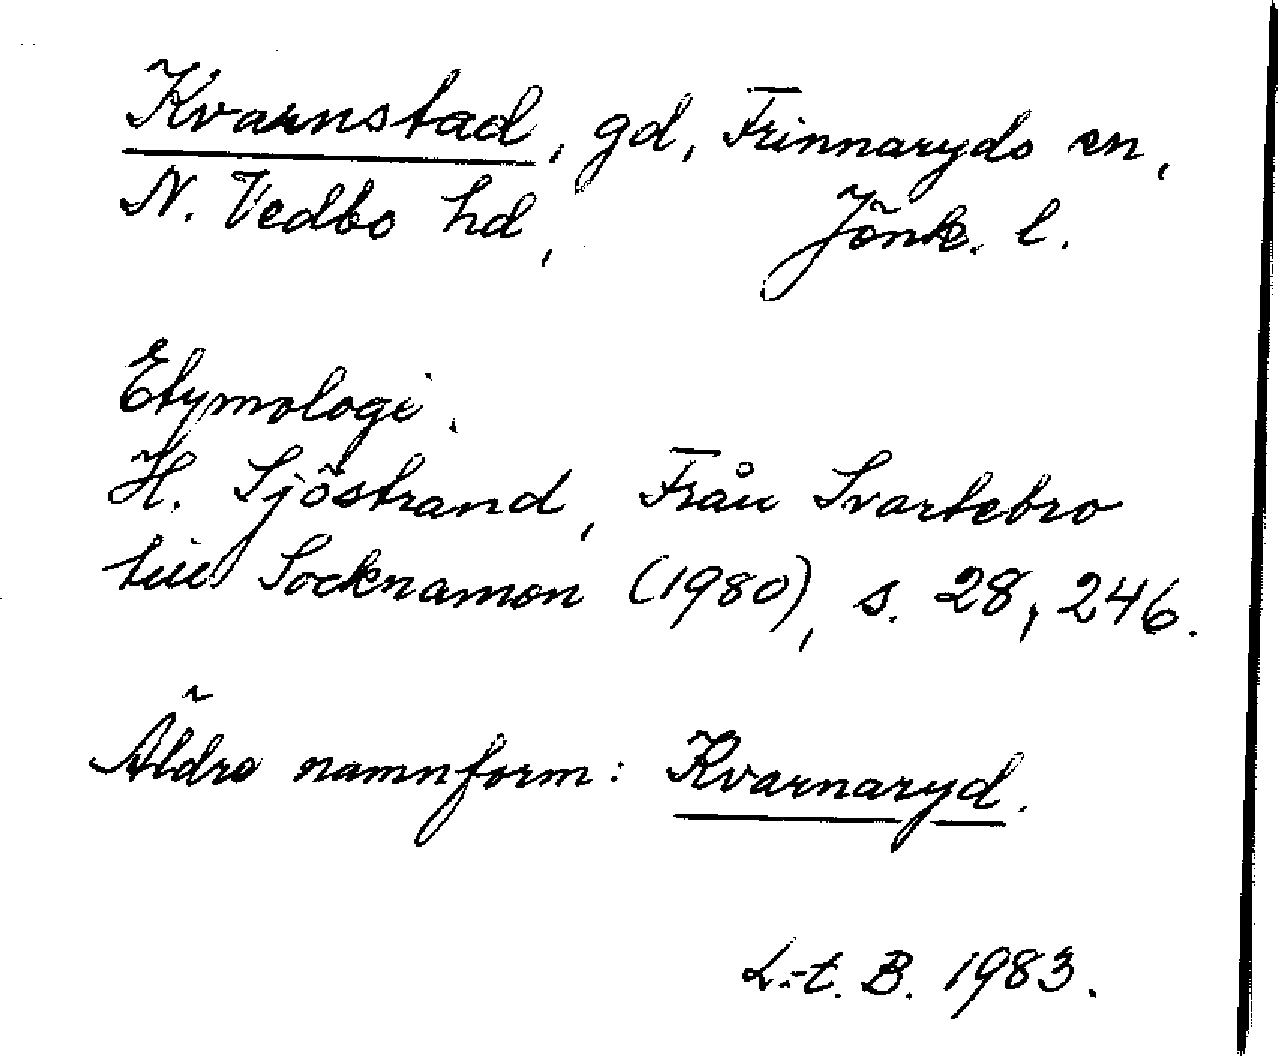 Kvarnstad, gd, Frinnaryds sn,
N. Vedbo hd, Jönk. l.
Etymologi.
H. Sjöstrand, Från Svartebro
till Socknamon (1980), s. 28, 246.
Äldre namnform: Kvarnaryd.
L-t. B. 1983.